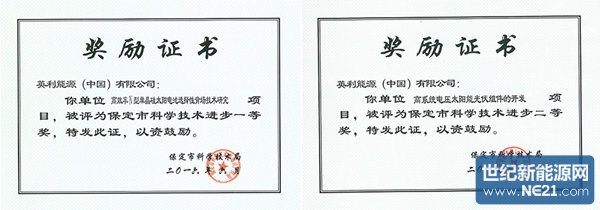 奖励证书
英利能源（中国）有限公司：
你单位 高效率N型单晶硅太阳电池选择性背场技术研究 项
目，被评为保定市科学技术进步一等
奖，特发此证，以资鼓励。
保定市科学技术局
二〇一六年六月
奖励证书
英利能源（中国）有限公司：
你单位 高系统电压太阳能光伏组件的开发 项
目，被评为保定市科学技术进步二等
奖，特发此证，以资鼓励。
保定市科学技术局
世纪新能源网
www.NE21.com